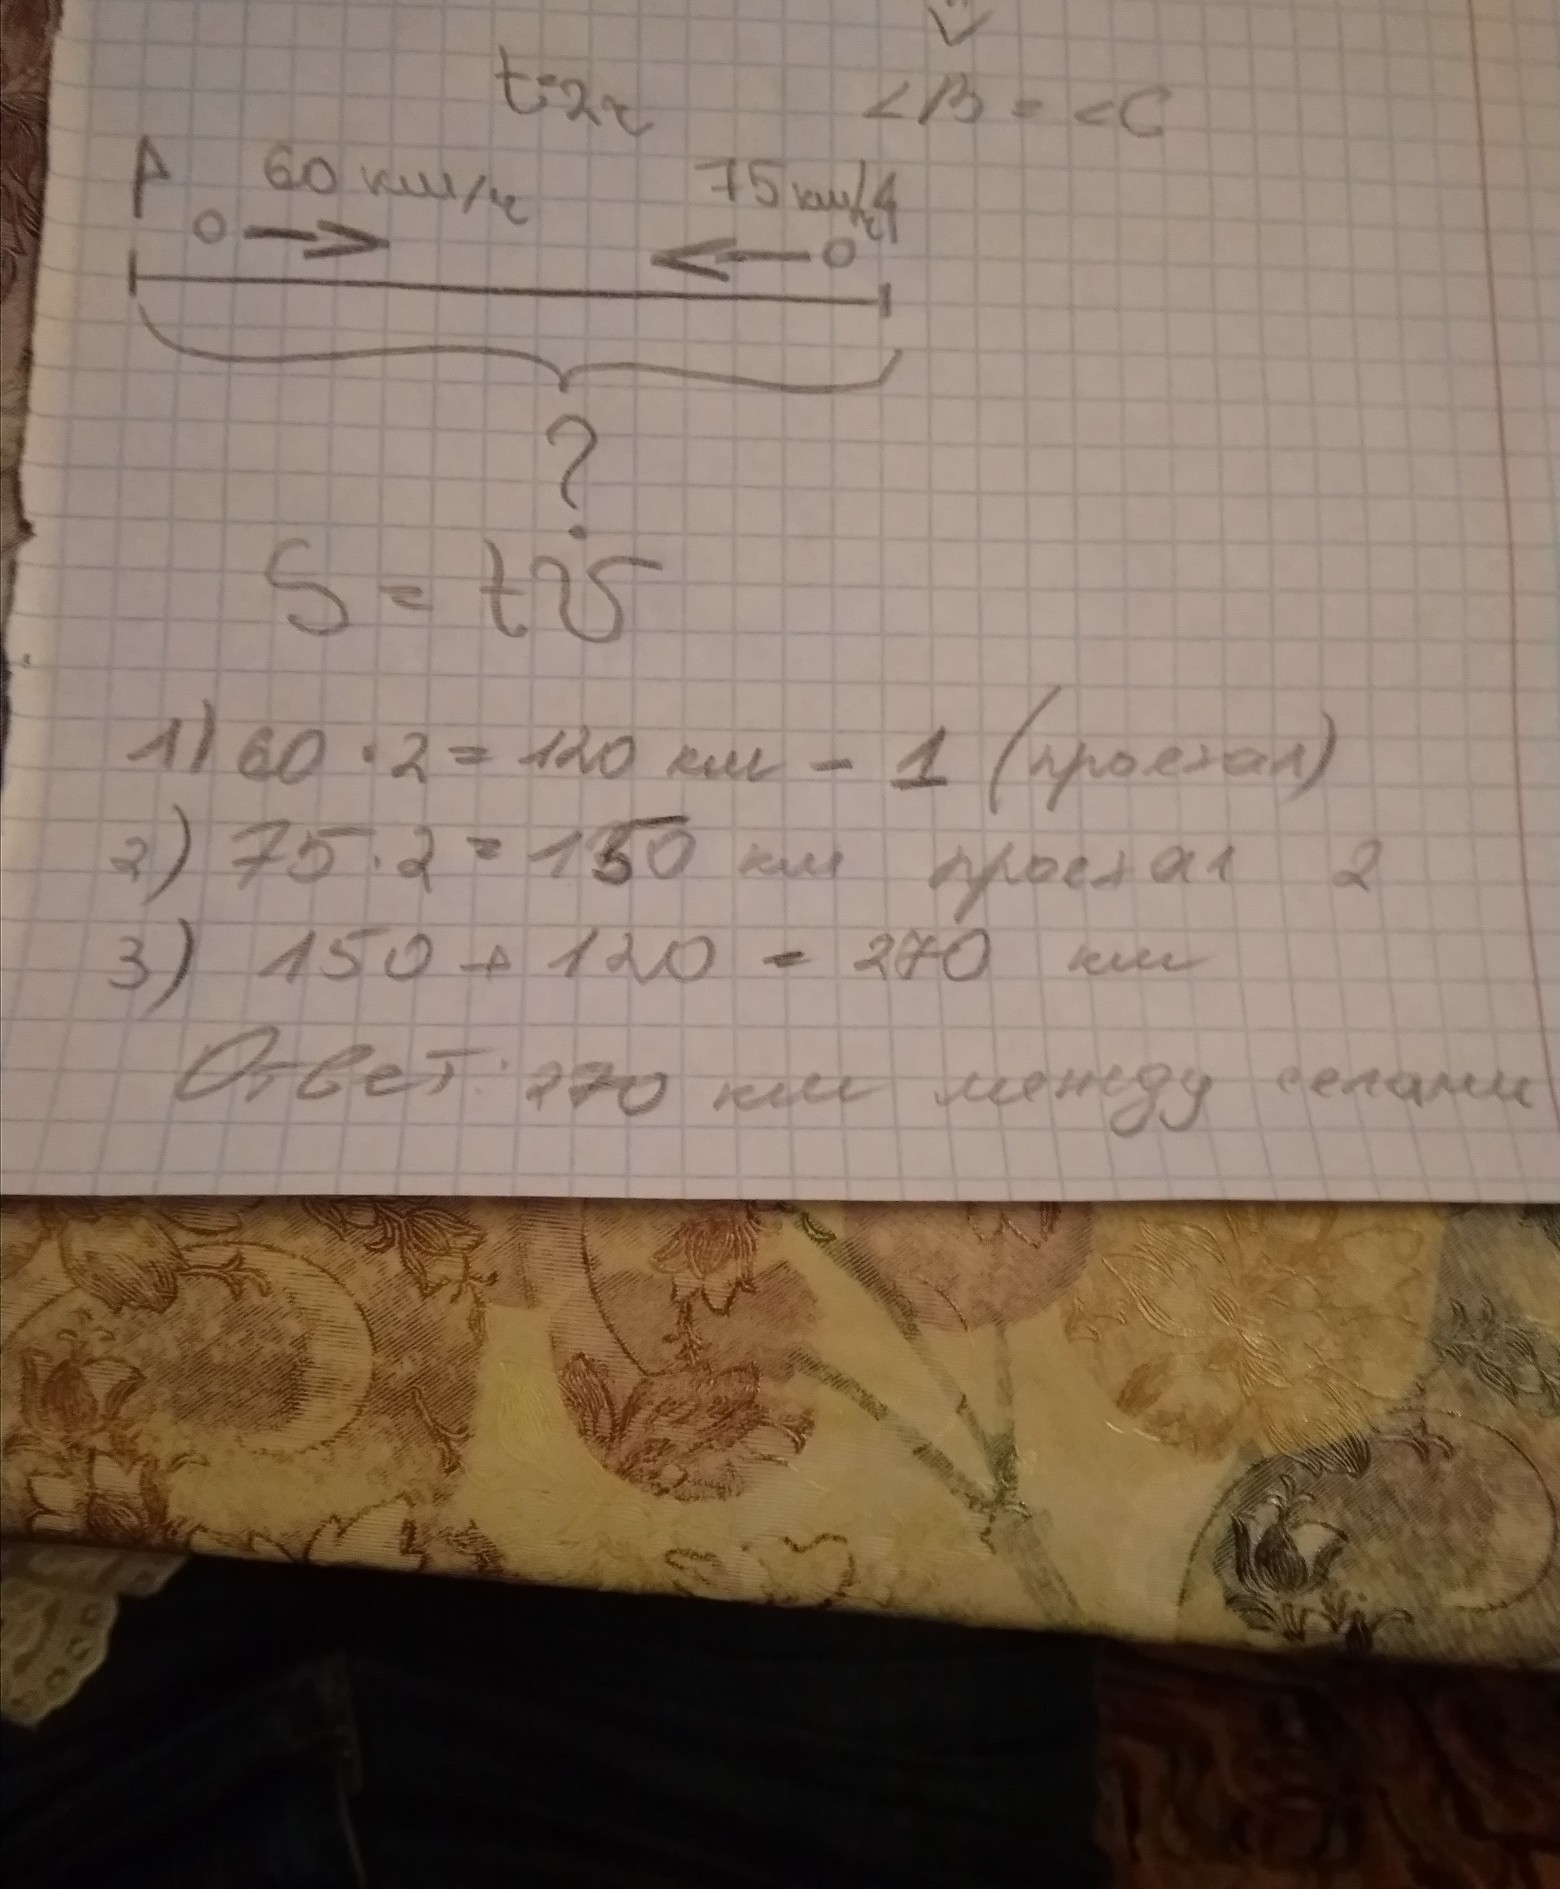 t=2ч
∠B = ∠C
A 60 км/ч 75 км/ч
?
S = tv
1) 60 · 2 = 120 км - 1 (проехал)
2) 75 · 2 = 150 км проехал 2
3) 150 + 120 = 270 км
Ответ: 270 км между селами